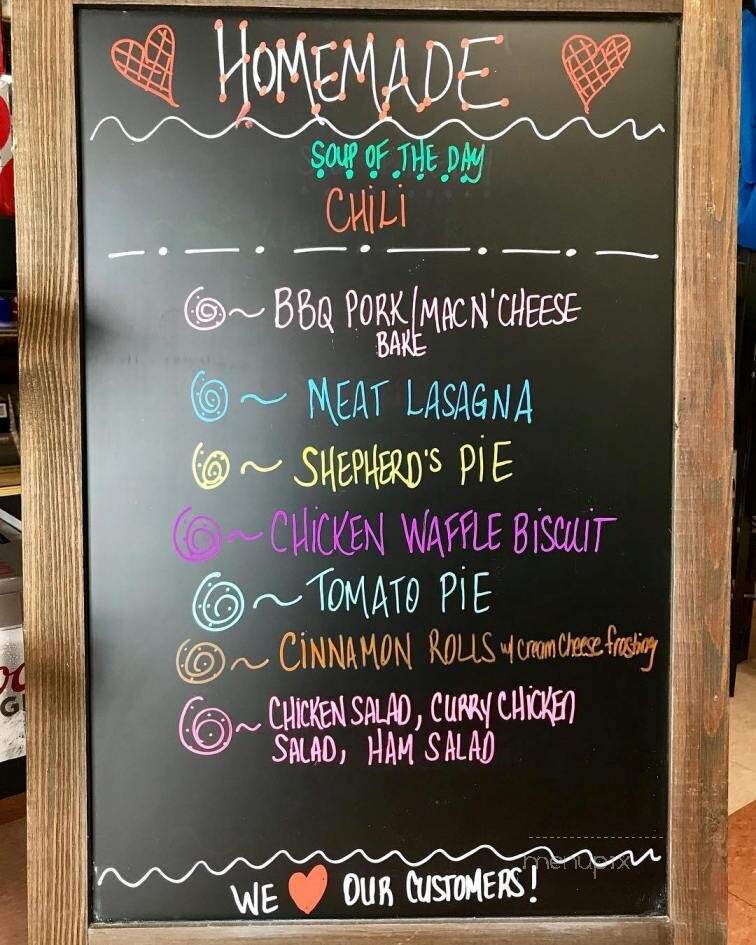 HOMEMADE
SOUP OF THE DAY
CHILI
BBQ PORK/MAC N' CHEESE
BAKE
MEAT LASAGNA
SHEPHERD'S PIE
CHICKEN WAFFLE BISCUIT
TOMATO PIE
CINNAMON ROLLS w/ cream cheese frosting
CHICKEN SALAD, CURRY CHICKEN
SALAD, HAM SALAD
menupix
WE OUR CUSTOMERS!